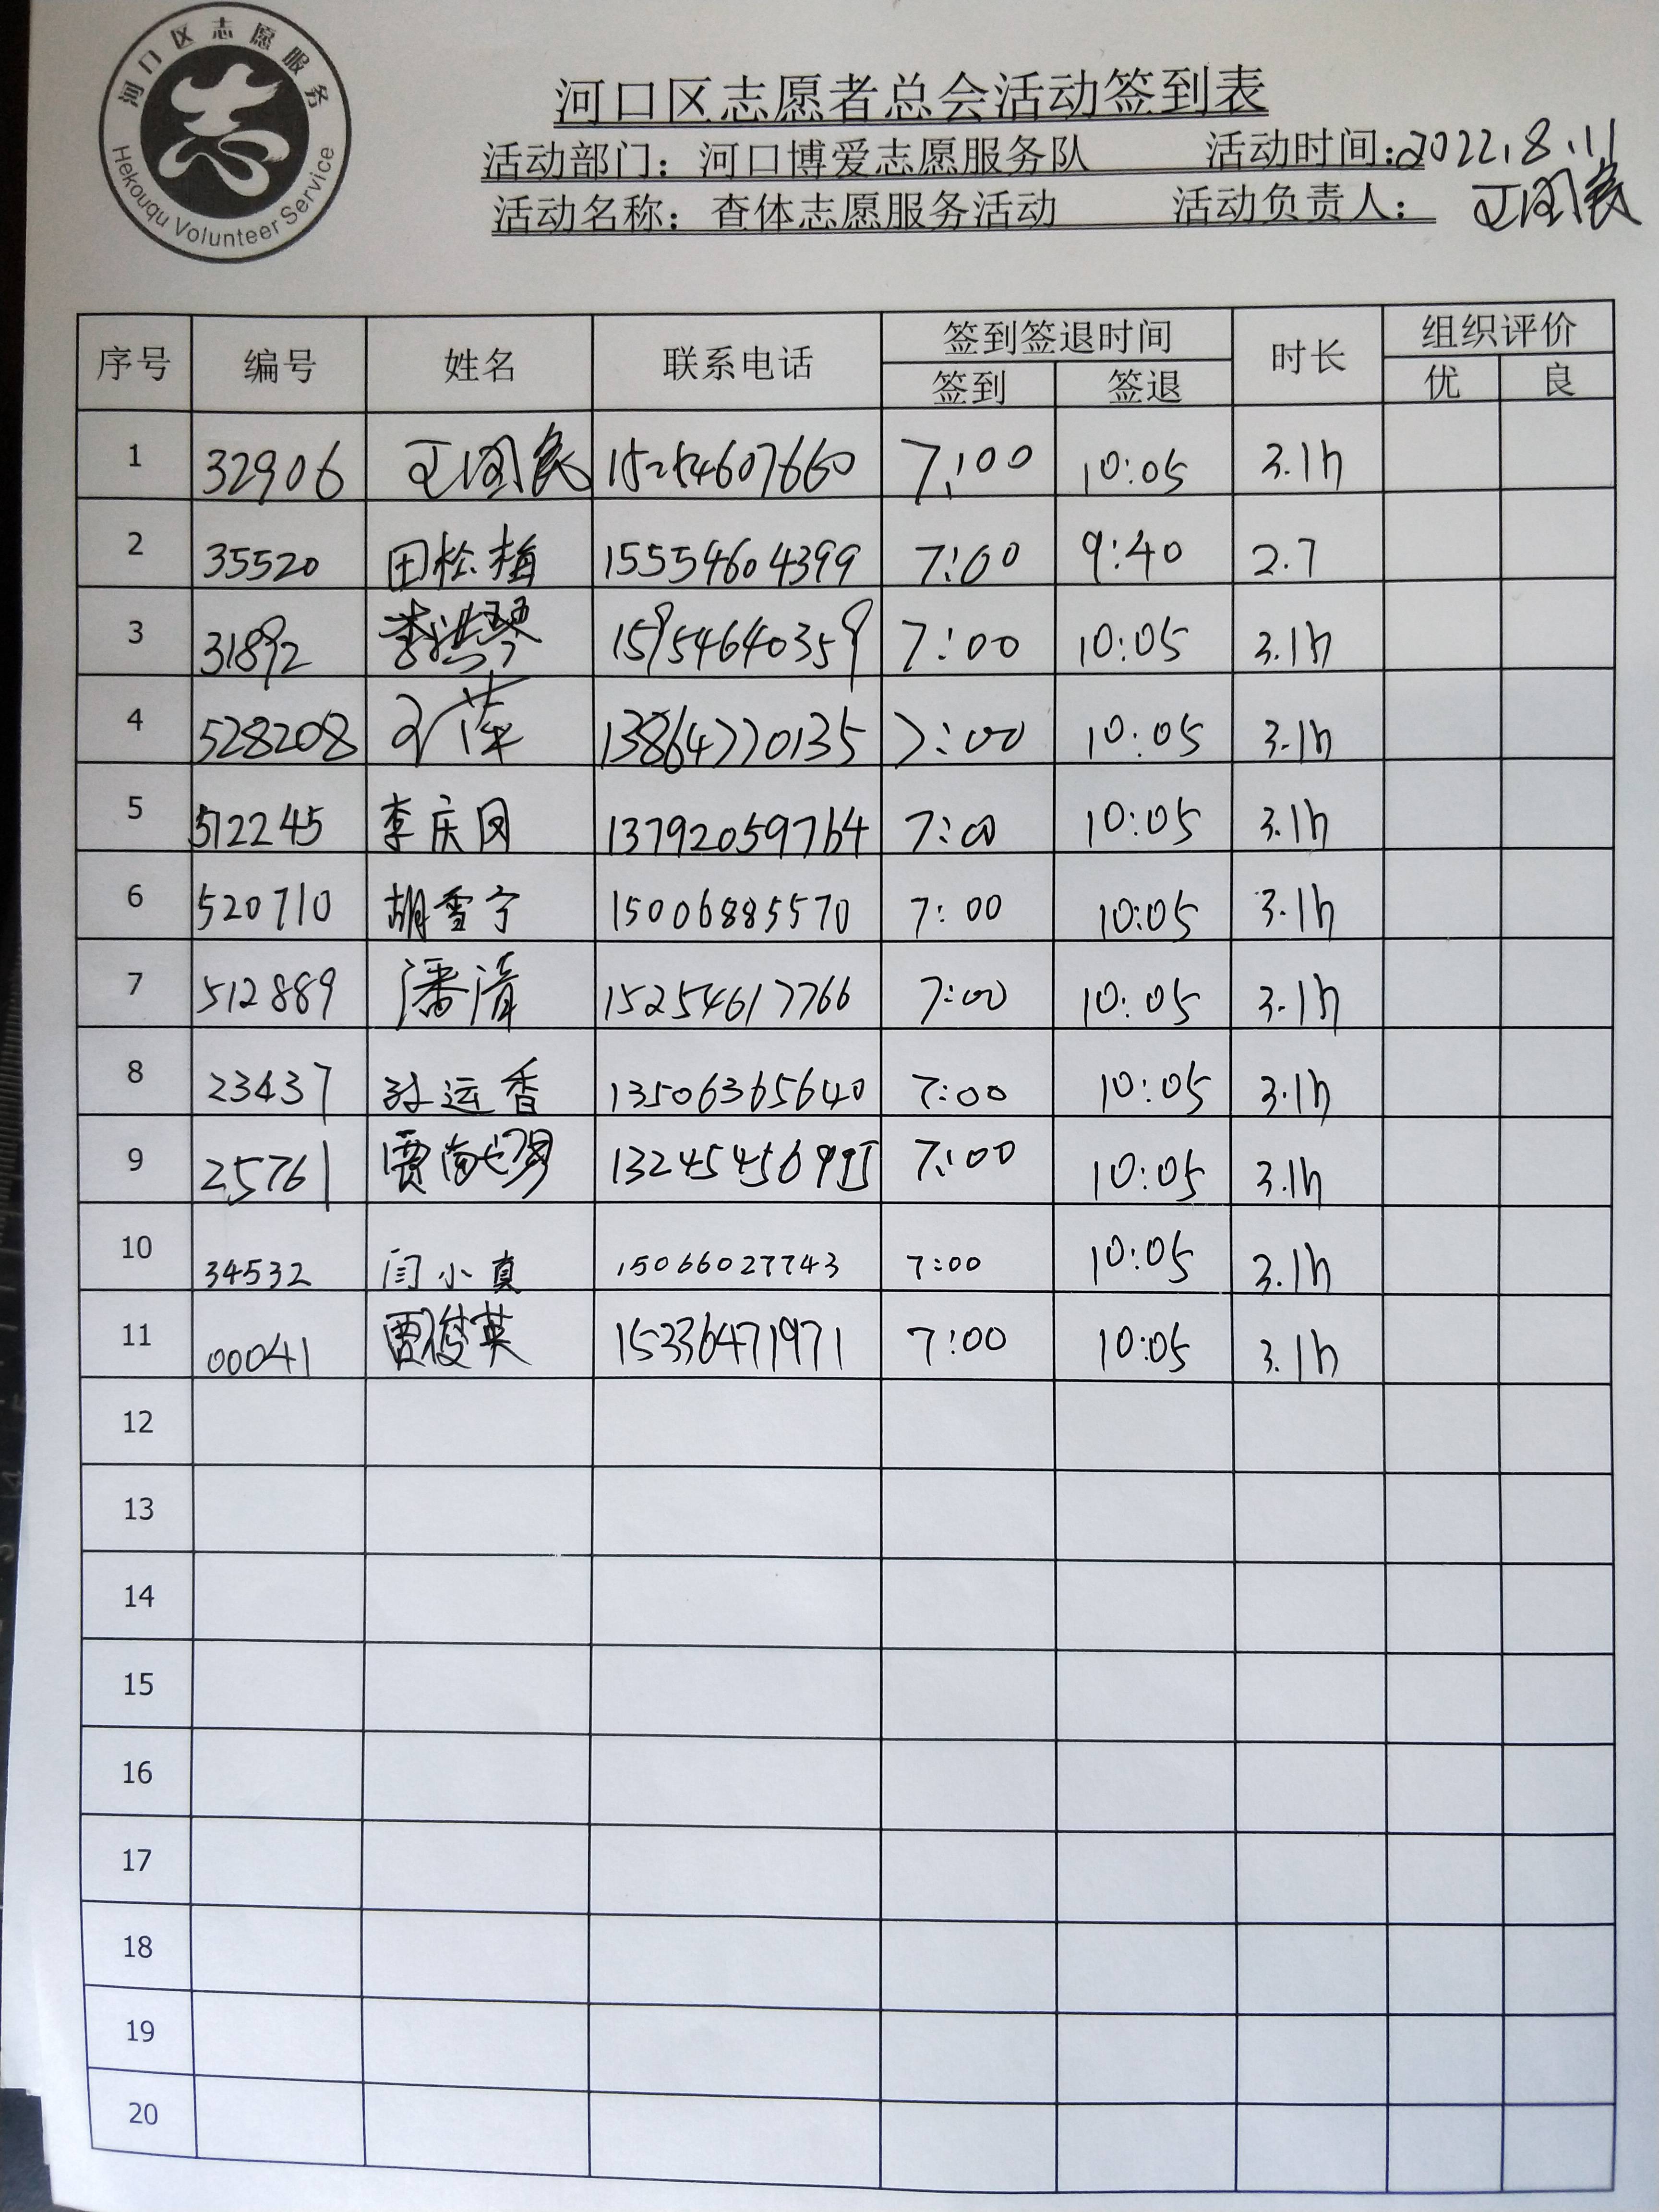 河口区志愿服务
Hekouqu Volunteer Service
河口区志愿者总会活动签到表
活动部门：河口博爱志愿服务队 活动时间：2022.8.11
活动名称：查体志愿服务活动 活动负责人：王国民
序号 编号 姓名 联系电话 签到签退时间 时长 组织评价
签到 签退 优 良
1 32906 王国民 15254607660 7:00 10:05 3.1h
2 35520 田松梅 15554604399 7:00 9:40 2.7
3 31892 李洪琴 15954640359 7:00 10:05 3.1h
4 528208 13864770135 7:00 10:05 3.1h
5 512245 李庆因 13792059764 7:00 10:05 3.1h
6 520710 胡雪宁 15006885570 7:00 10:05 3.1h
7 512889 潘清 15254617766 7:00 10:05 3.1h
8 23437 孙运香 13506365640 7:00 10:05 3.1h
9 25761 7:00 10:05 3.1h
10 34532 闫小真 15066027743 7:00 10:05 3.1h
11 00041 贾俊英 15336471971 7:00 10:05 3.1h
12
13
14
15
16
17
18
19
20